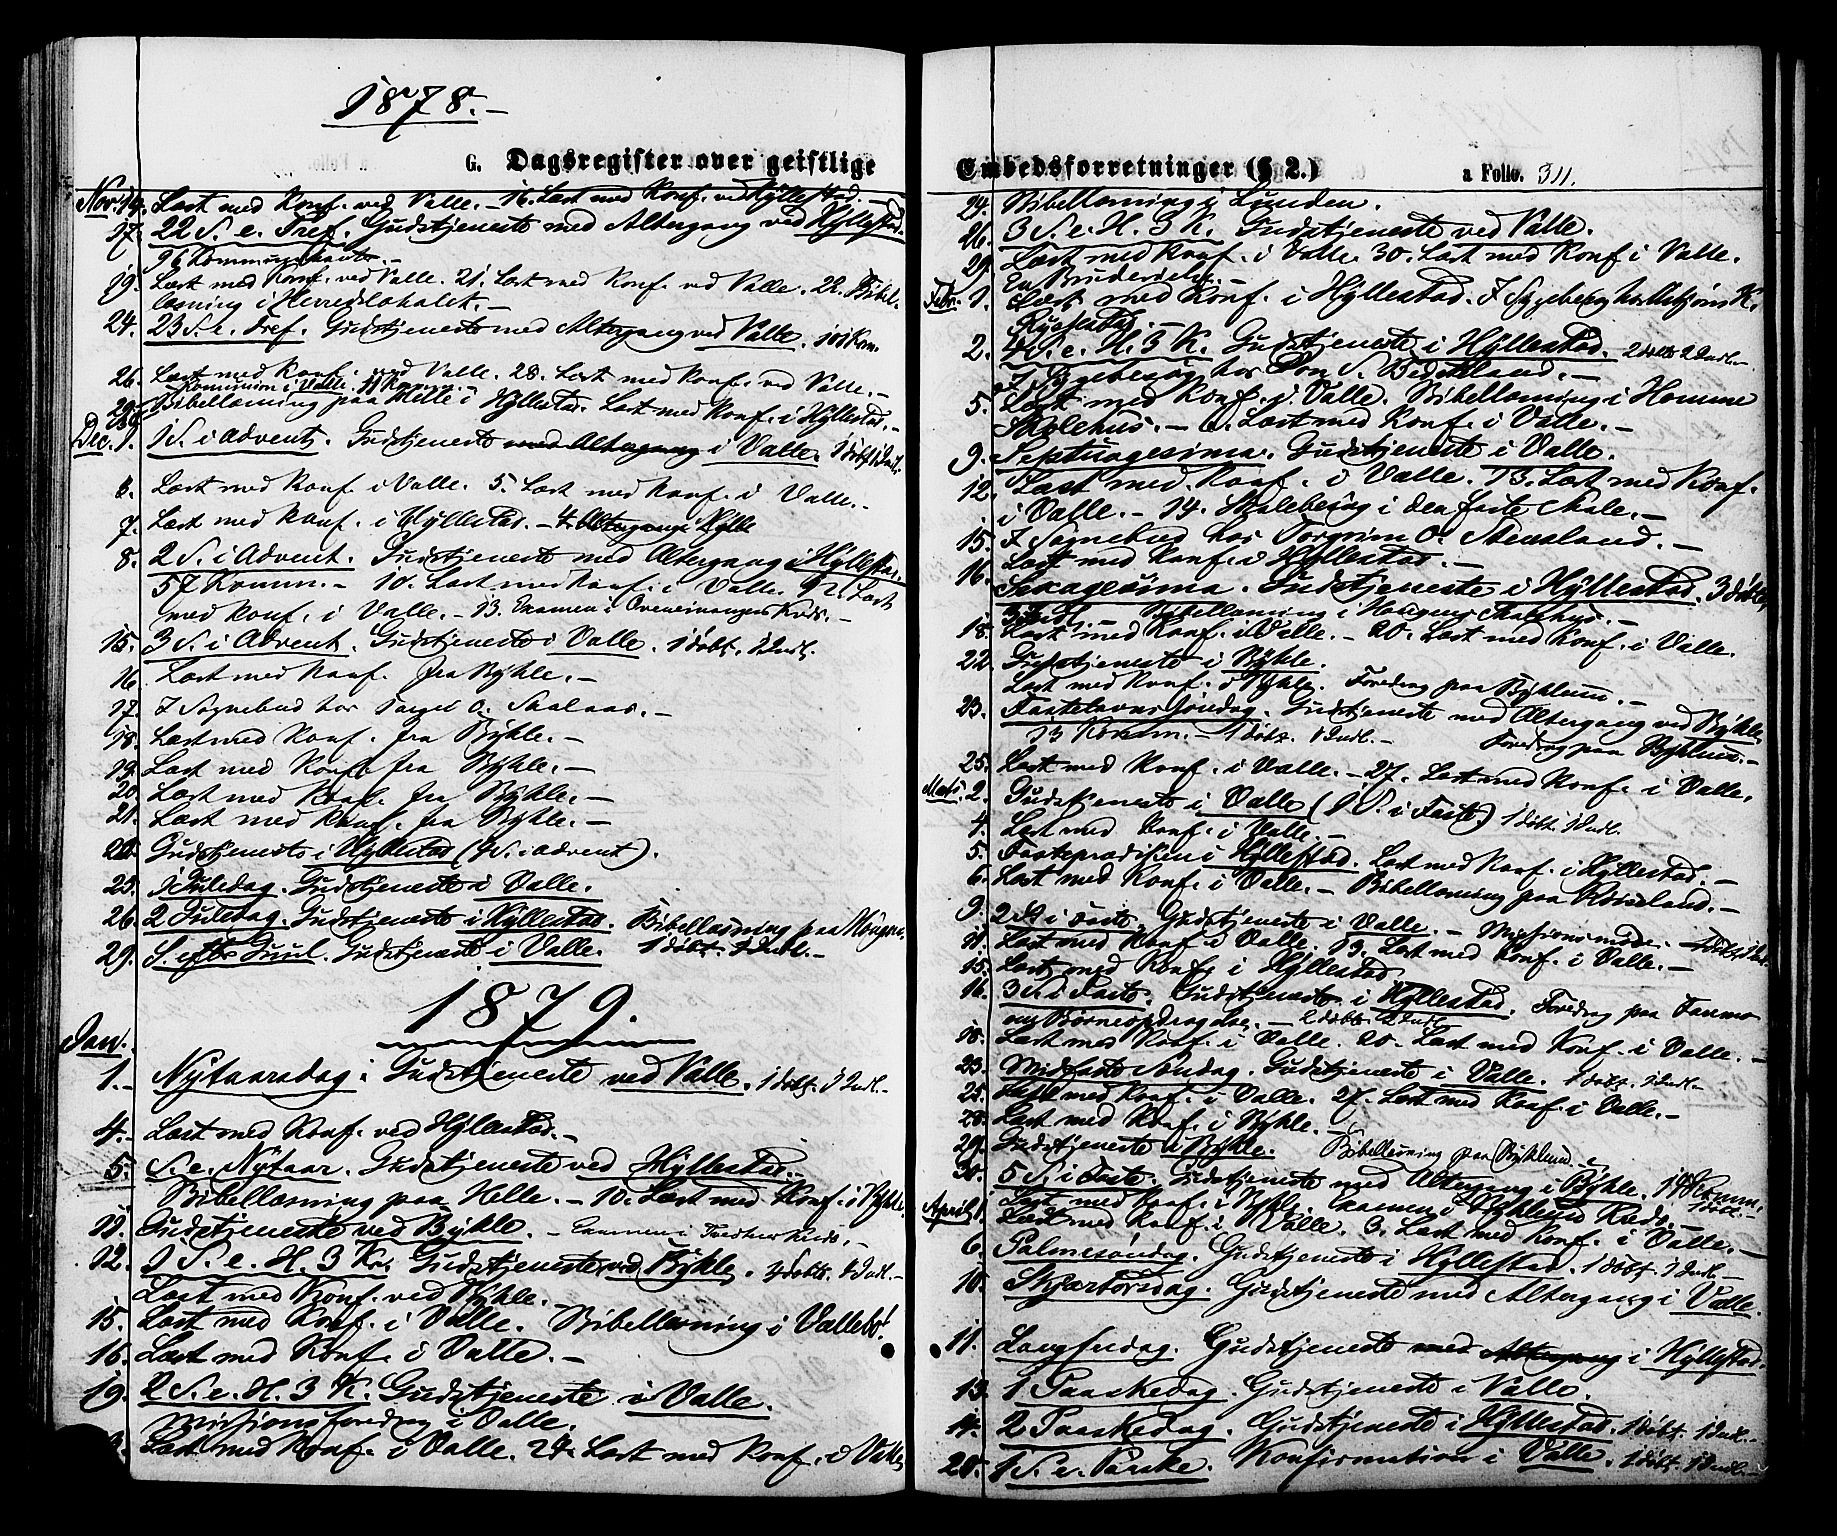 1878.-
G. Dagsregister over geistlige
Nov. 14. Læst med Konf. ved Valle. - 16. Læst med Konf. ved Hyllestad. -
17. 22 S. e. Tref. Gudstjeneste med Altergang ved Hyllestad.
96 Kommunikanter. -
19. Læst med Konf. ved Valle. 21. Læst med Konf. ved Valle. 22. Bibel-
læsning i Herredslokalet. -
24. 23 S. e. Tref. Gudstjeneste med Altergang ved Valle. 101 Kom.
26. Læst med Konf. ved Valle. 28. Læst med Konf. ved Valle. -
Kommunion i Valle. 11 Komm. -
Bibellæsning paa Helle i Hyllestad. Læst med Konf. i Hyllestad. -
Dec. 1. 1 S. i Advent. Gudstjeneste med Altergang i Valle. 1 döbt 1 Indl.
3. Læst med Konf. i Valle. 5. Læst med Konf. i Valle. -
7. Læst med Konf. i Hyllestad. - Altergang i
8. 2 S. i Advent. Gudstjeneste med Altergang i Hyllestad.
57 Komm. - 10. Læst med Konf. i Valle. 12. Læst
med Konf. i Valle. - 13. Examen i Kreds. -
15. 3 S. i Advent. Gudstjeneste i Valle. 1 döbt. 1 Indl.
16 Læst med Konf. fra Bykle. -
17. I Sognebud hos O. -
18. Læst med Konf. fra Bykle. -
19. Læst med Konf. fra Bykle. -
20. Læst med Konf. fra Bykle. -
21. Læst med Konf. fra Bykle. -
22. Gudstjeneste i Hyllestad (4 S. i Advent).
25. 1 Juledag. Gudstjeneste i Valle.
26. 2 Juledag. Gudstjeneste i Hyllestad. Bibellæsning paa
29. S. efter Juul. Gudstjeneste i Valle. 1 döbt. 1 Indl. -
1879.
Jan.
1. - Nytaarsdag. Gudstjeneste ved Valle. 1 döbt. 1 Indl. -
4. - Læst med Konf. ved Hyllestad. -
5. S. e. Nytaar. Gudstjeneste ved Hyllestad. -
Bibellæsning paa Helle. - 10. Læst med Konf. i Bykle.
11. Gudstjeneste ved Bykle. - Examen i Kreds. -
12. 1 S. e. H. 3 K. Gudstjeneste ved Bykle. 4 döbt. 1 Indl. -
Læst med Konf. ved Bykle. -
15. Læst med Konf. i Valle. Bibellæsning i Vallebö.
16. Læst med Konf. i Valle. -
19. 2 S. e. H. 3 K. Gudstjeneste i Valle.
Missionsforedrag i Valle.
Læst med Konf. i Valle. Læst med Konf. i Valle
Embedsforretninger (§ 2.) a Folio. 311.
24. Bibellæsning i Lunden.
26. 3 S. e. H. 3 K. Gudstjeneste ved Valle.
29. Læst med Konf. i Valle. 30. Læst med Konf. i Valle.
En Brudevielse. -
Febr. 1. Læst med Konf. i Hyllestad. I Sygebesög hos K.
Rysstad. -
2. 4 S. e. H. 3 K. Gudstjeneste i Hyllestad. 2 döbt 2 Indl. -
I Sygebesög hos S. -
5. Læst med Konf. i Valle. Bibellæsning i Homme
Skolehus. - 6. Læst med Konf. i Valle. -
9. Septuagesima. Gudstjeneste i Valle.
12. Læst med Konf. i Valle. 13. Læst med Konf.
i Valle. - 14. Skolebesög i den faste Skole. -
15. I Sognebud hos Torgrim O. Stensland. -
Læst med Konf. i Hyllestad. -
16. Sexagesima. Gudstjeneste i Hyllestad. 3 döbt
3 Indl. - Bibellæsning i Skolehus. -
18. Læst med Konf. i Valle. - 20. Læst med Konf. i Valle.
22. Gudstjeneste i Bykle.
Læst med Konf. i Bykle. Foredrag paa Byklum. -
23. Fastelavns Söndag. Gudstjeneste med Altergang ved Bykle
13 Komm. - 1 döbt. 1 Indl. - Foredrag paa Byklum. -
25. Læst med Konf. i Valle. - 27. Læst med Konf. i Valle.
Mars. 2. Gudstjeneste i Valle (1 S. i Faste) 1 döbt. 1 Indl.
4. Læst med Konf. i Valle. -
5. Fasteprædiken i Hyllestad. Læst med Konf. i Hyllestad. -
6. Læst med Konf. i Valle. - Bibellæsning paa -
9. 2 S. i Faste. Gudstjeneste i Valle. - Missionsmöde. -
11. Læst med Konf. i Valle. 13. Læst med Konf. i Valle. -
15. Læst med Konf. i Hyllestad
16. 3 S. i Faste. Gudstjeneste i Hyllestad. Foredrag paa
om Börneopdragelse. - 2 döbt. 2 Indl.
18. Læst med Konf. i Valle. 20. Læst med Konf. i Valle. -
23. Midfaste Söndag. Gudstjeneste i Valle. 1 döbt. 1 Indl. -
25. Læst med Konf. i Valle. 27. Læst med Konf. i Valle. -
28. Læst med Konf. i Bykle. -
29. Gudstjeneste i Bykle. Bibellæsning paa Byklum. -
30. 5 S. i Faste. Gudstjeneste med Altergang i Bykle. Komm.
Læst med Konf. i Bykle. Examen i Byklum Kreds. - 1 döbt. -
April 1. Læst med Konf. i Valle. 3. Læst med Konf. i Valle. -
6. Palmesöndag. Gudstjeneste i Hyllestad. 1 döbt. 1 Indl. -
10. Skjærtorsdag. Gudstjeneste med Altergang i Valle.
11. Langfredag. Gudstjeneste med Altergang i Hyllestad.
13. 1 Paaskedag. Gudstjeneste i Valle.
14. 2 Paaskedag. Gudstjeneste i Hyllestad. 1 döbt. 1 Indl. -
20. 1 S. e. Paaske. Konfirmation i Valle. 1 döbt. 1 Indl. -